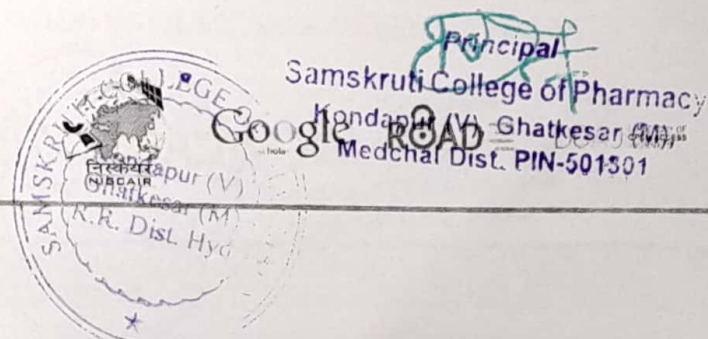 Principal
Samskruti College of Pharmacy
Kondapur (V) Ghatkesar (M)
Medchal Dist. PIN-501301
SAMSKRUTI COLLEGE
निस्केयर
NISCAIR
Kondapur (V)
Ghatkesar (M)
R.R. Dist. Hyd
Google
ROAD